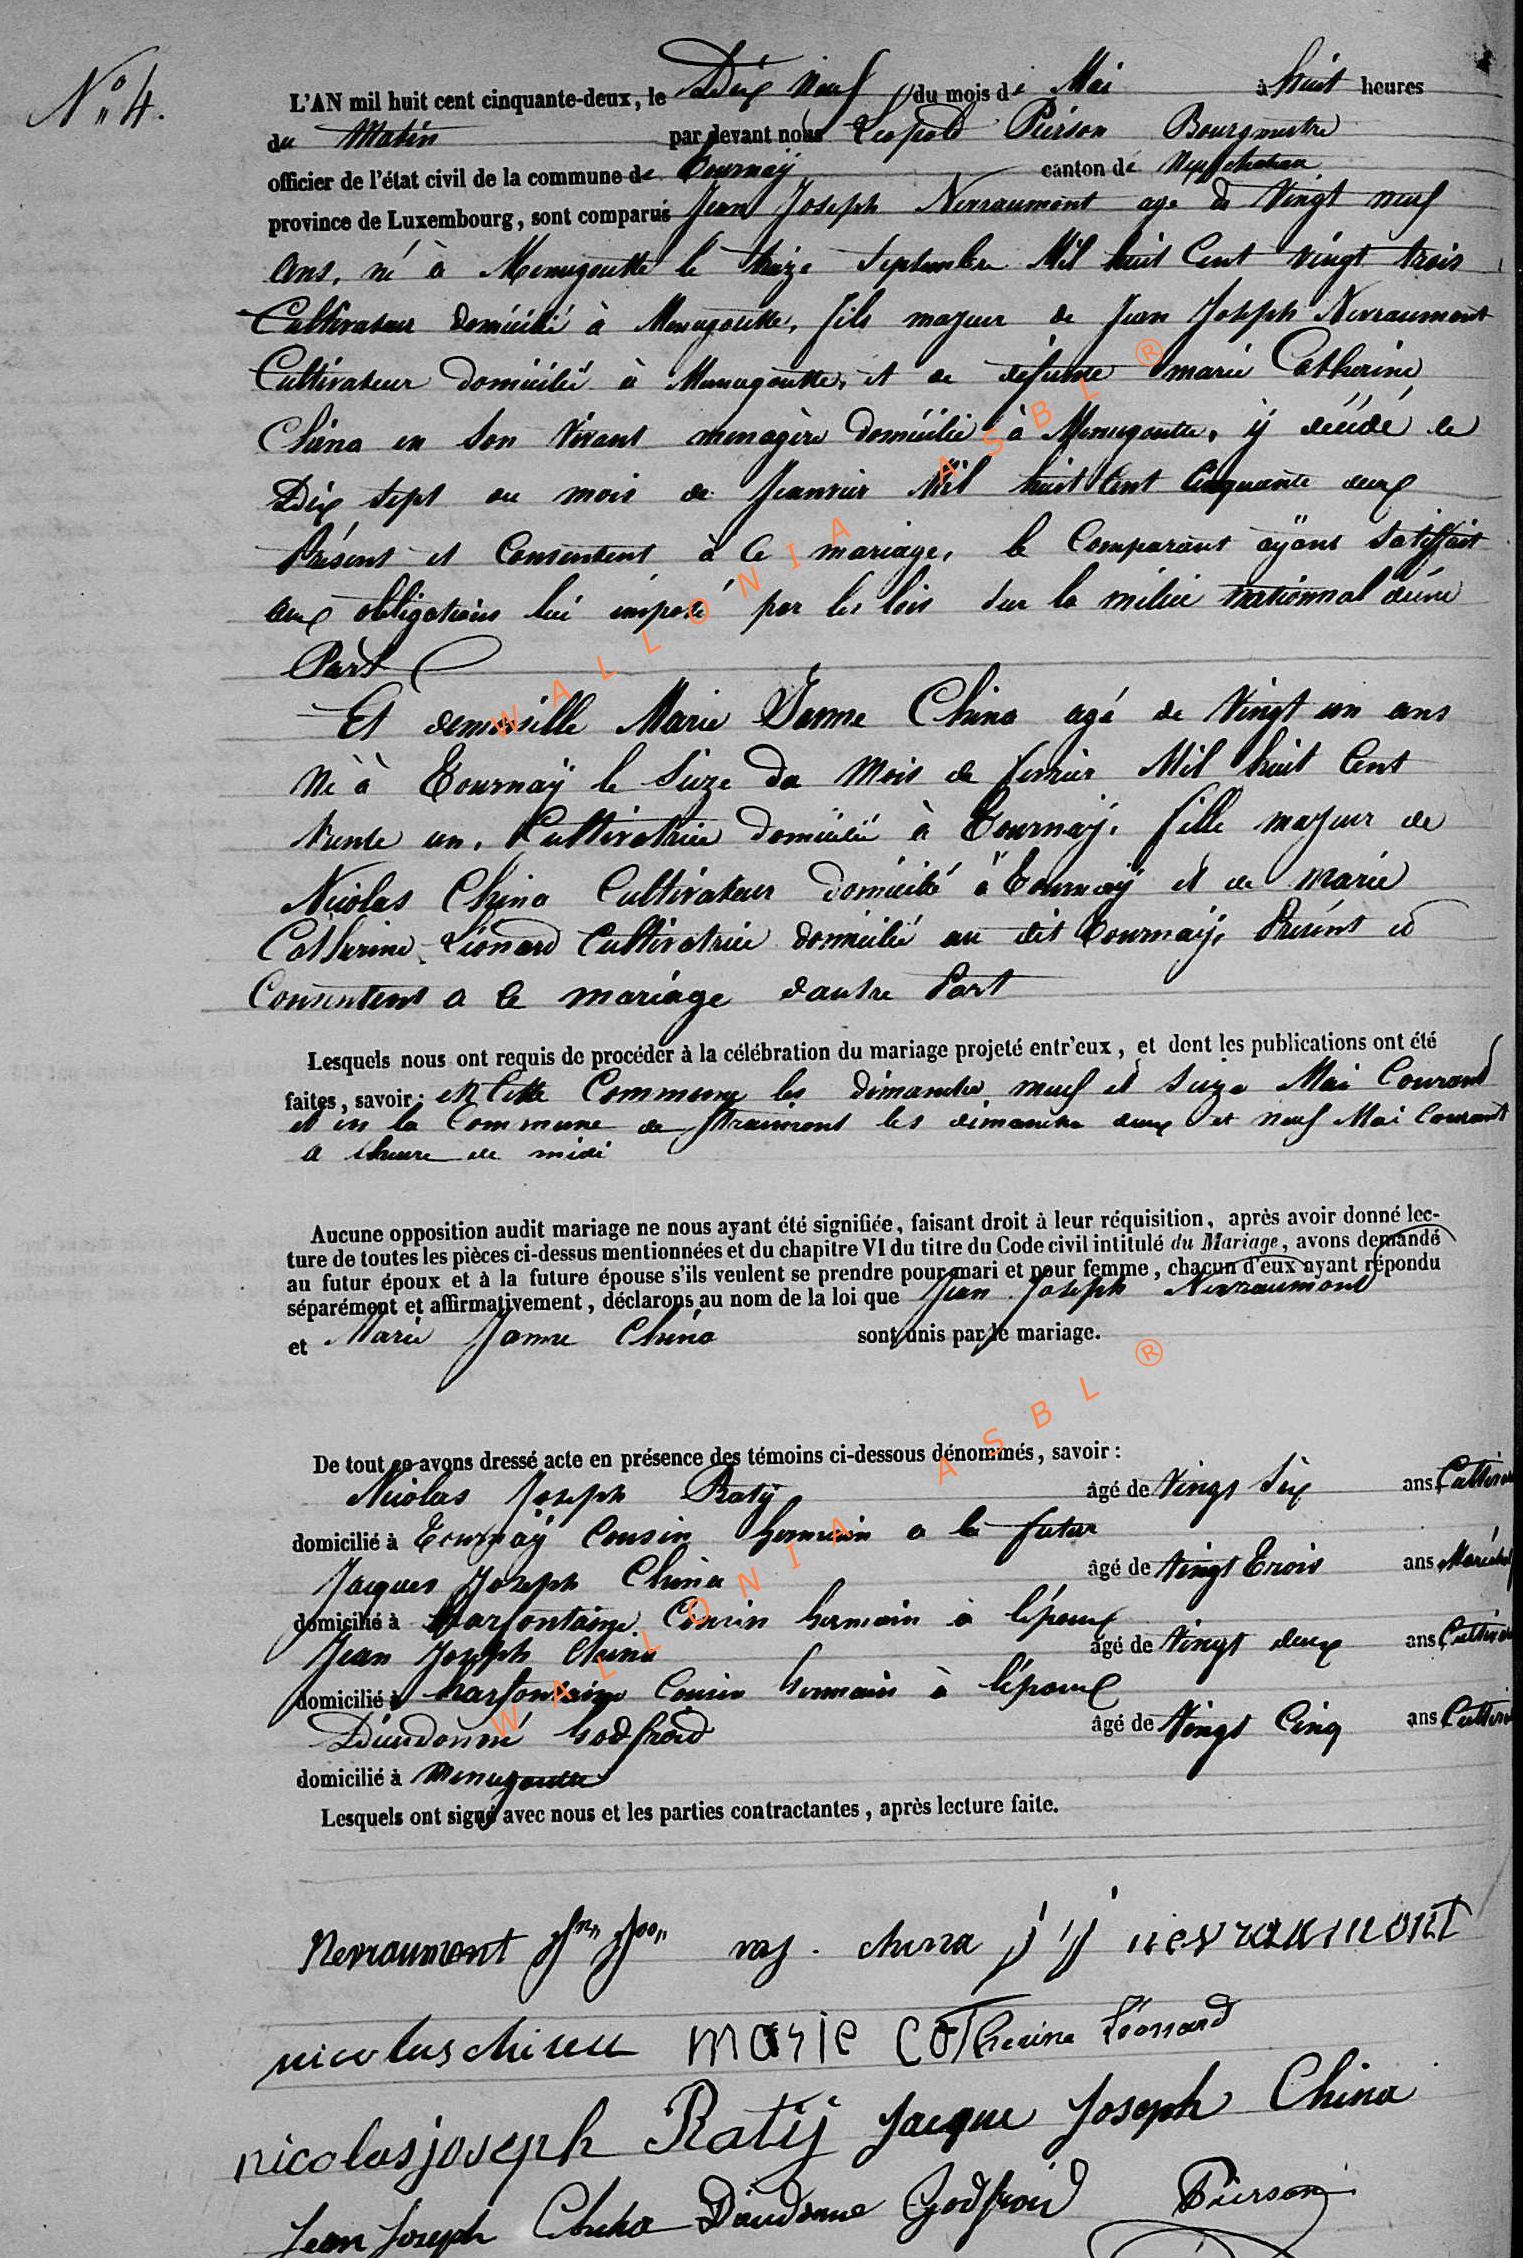 N° 4.
L'AN mil huit cent cinquante-deux, le Dix neuf du mois de Mai à huit heures
du Matin par devant nous Léopold Pierson Bourgmestre
officier de l'état civil de la commune de Tournay canton de Neufchateau
province de Luxembourg, sont comparus Jean Joseph Nevraumont age de Vingt neuf
ans, né à Menugoutte le treize Septembre Mil huit Cent vingt trois
Cultivateur domicilié à Menugoutte, fils majeur de Jean Joseph Nevraumont
Cultivateur domicilié à Menugoutte, et de défunte marie Catherine
China en son vivant menagère domicilié à Menugoutte, ij décédé le
Dix sept du mois de Jeanvier Mil huit Cent Cinquante deux
Présent et Consentent à Ce mariage, le Comparant aÿant Satisfait
aux obligations lui imposé par les lois sur la milice nationnal d'une
Part
Et demoiselle Marie Jeanne China agé de Vingt un ans
Né à Tournaÿ le Seize du Mois de fevrier Mil huit Cent
trente un, Cultivatrice domicilié à Tournaÿ, fille majeur de
Nicolas China Cultivateur domicilié à Tournaÿ et de Marie
Catherine Léonard Cultivatrice domicilié au dit Tournaÿ, Présent et
Consentent a Ce mariage dautre Part
Lesquels nous ont requis de procéder à la célébration du mariage projeté entr'eux, et dont les publications ont été
faites, savoir: en Cette Commune les dimanche neuf et Seize Mai Courant
et en la Commune de Straimont les dimanche deux et neuf Mai Courant
a lheure de midi
Aucune opposition audit mariage ne nous ayant été signifiée, faisant droit à leur réquisition, après avoir donné lec-
ture de toutes les pièces ci-dessus mentionnées et du chapitre VI du titre du Code civil intitulé du Mariage, avons demandé
au futur époux et à la future épouse s'ils veulent se prendre pour mari et pour femme, chacun d'eux ayant répondu
séparément et affirmativement, déclarons au nom de la loi que Jean Joseph Nevraumont
et Marie Janne China sont unis par le mariage.
De tout ce avons dressé acte en présence des témoins ci-dessous dénommés, savoir:
Nicolas Joseph Ratÿ âgé de Vingt Six ans
domicilié à Tournaÿ Cousin Germain a la futur
Jacques Joseph China âgé de Vingt Trois ans
domicilié à Warfontaine Cousin Germain à l'époux
Jean Joseph China âgé de Vingt deux ans
domicilié à Warfontaine Cousin Germain à l'époux
Dieudonné Godfroid âgé de Vingt Cinq ans
domicilié à Menugoutte
Lesquels ont signé avec nous et les parties contractantes, après lecture faite.
Nevraumont china j j nevraumont
nicolas china marie catherine Léonard
nicolas joseph Ratÿ Jacque Joseph China
Jean Joseph China Dieudonne Godfroid Pierson
WALLONIA ASBL ®
WALLONIA ASBL ®